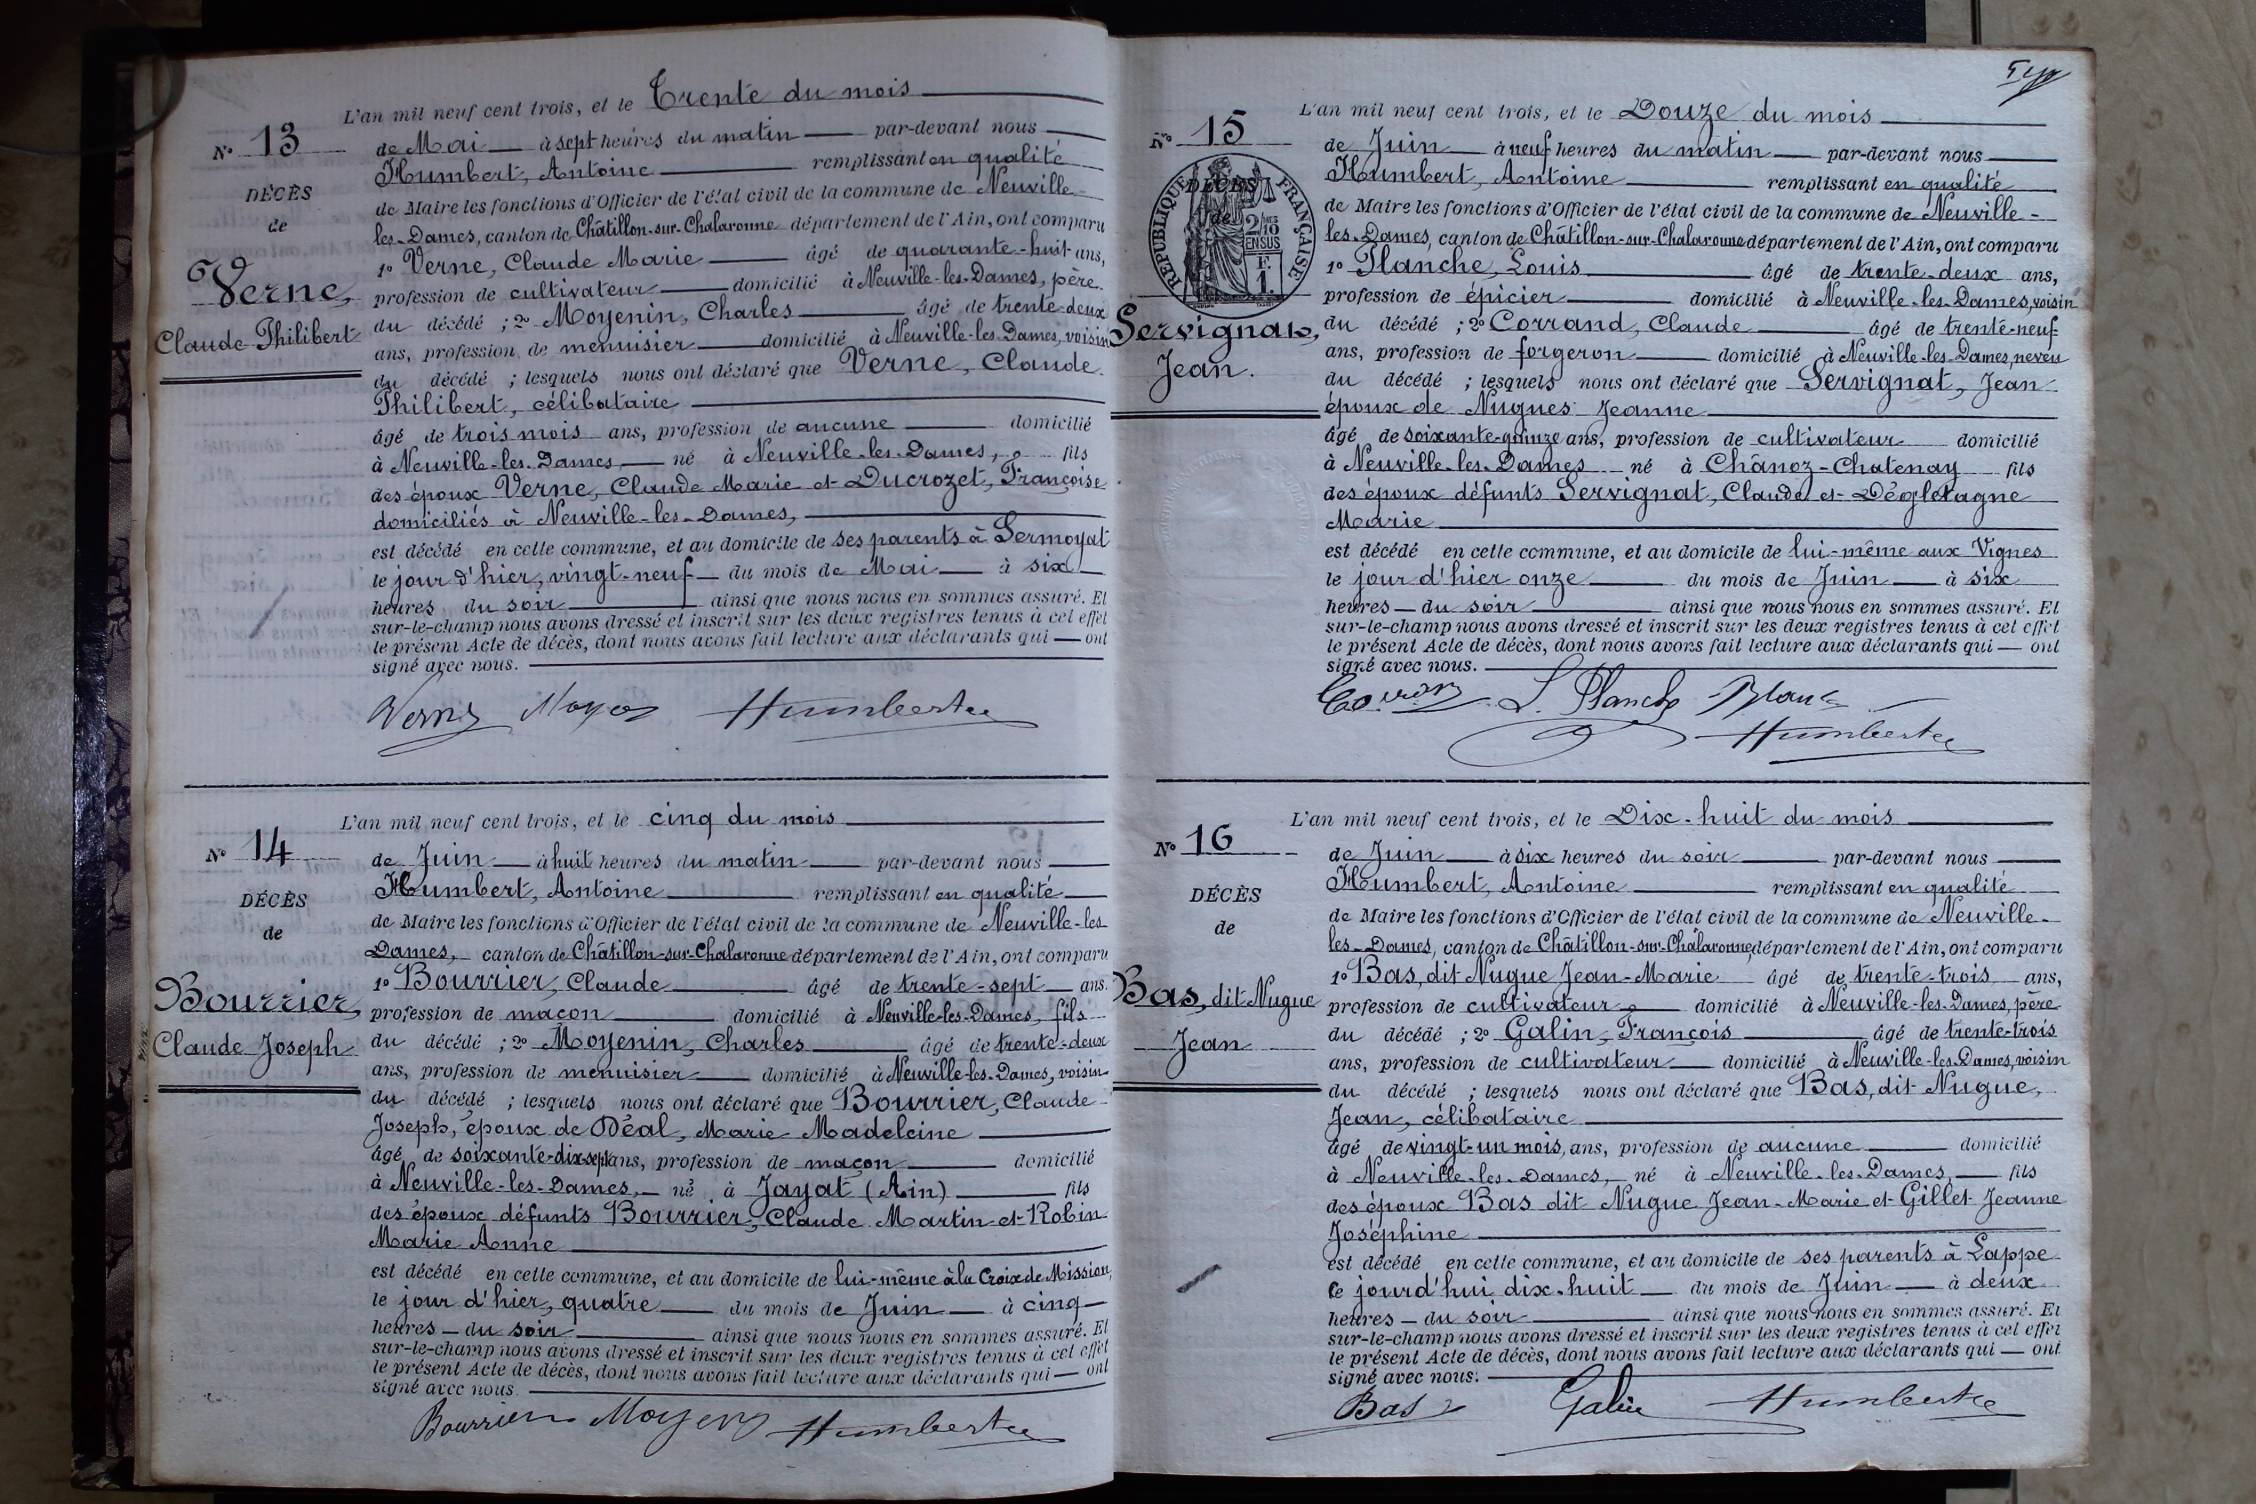 L'an mil neuf cent trois, et le Trente du mois
N° 13
de Mai à sept heures du matin par-devant nous
Humbert, Antoine remplissant en qualité
DÉCÈS
de Maire les fonctions d'Officier de l'état civil de la commune de Neuville-
de
les-Dames, canton de Châtillon-sur-Chalaronne département de l'Ain, ont comparu
1° Verne, Claude Marie âgé de quarante-huit ans,
Verne,
profession de cultivateur domicilié à Neuville-les-Dames, père
du décédé ; 2° Moyenin, Charles âgé de trente-deux
Claude Philibert
ans, profession de menuisier domicilié à Neuville-les-Dames, voisin
du décédé ; lesquels nous ont déclaré que Verne, Claude
Philibert, célibataire
âgé de trois mois ans, profession de aucune domicilié
à Neuville-les-Dames, né à Neuville-les-Dames, fils
des époux Verne, Claude Marie et Ducrozet, Françoise
domiciliés à Neuville-les-Dames,
est décédé en cette commune, et au domicile de ses parents à Sermoyat
le jour d'hier, vingt-neuf du mois de Mai à six
heures du soir ainsi que nous nous en sommes assuré. Et
sur-le-champ nous avons dressé et inscrit sur les deux registres tenus à cet effet
le présent Acte de décès, dont nous avons fait lecture aux déclarants qui — ont
signé avec nous.
Verne Humbert
L'an mil neuf cent trois, et le cinq du mois
N° 14
de Juin à huit heures du matin par-devant nous
Humbert, Antoine remplissant en qualité
DÉCÈS
de Maire les fonctions d'Officier de l'état civil de la commune de Neuville-les-
de
Dames, canton de Châtillon-sur-Chalaronne département de l'Ain, ont comparu
1° Bourrier, Claude âgé de trente-sept ans.
Bourrier,
profession de maçon domicilié à Neuville-les-Dames, fils
Claude Joseph
du décédé ; 2° Moyenin, Charles âgé de trente-deux
ans, profession de menuisier domicilié à Neuville-les-Dames, voisin
du décédé ; lesquels nous ont déclaré que Bourrier, Claude
Joseph, époux de Déal, Marie Madeleine
âgé de soixante-dix-sept ans, profession de maçon domicilié
à Neuville-les-Dames, né à Jayat (Ain) fils
des époux défunts Bourrier, Claude Martin et Robin
Marie Anne
est décédé en cette commune, et au domicile de lui-même à la Croix de Mission,
le jour d'hier, quatre du mois de Juin à cinq
heures — du soir ainsi que nous nous en sommes assuré. Et
sur-le-champ nous avons dressé et inscrit sur les deux registres tenus à cet effet
le présent Acte de décès, dont nous avons fait lecture aux déclarants qui — ont
signé avec nous.
Bourrier Humbert
L'an mil neuf cent trois, et le Douze du mois
N° 15
de Juin à neuf heures du matin par-devant nous
Humbert, Antoine remplissant en qualité
RÉPUBLIQUE FRANÇAISE
DÉCÈS
de
2/10 EN SUS
F. 1.
de Maire les fonctions d'Officier de l'état civil de la commune de Neuville-
les-Dames, canton de Châtillon-sur-Chalaronne département de l'Ain, ont comparu
1° Planche, Louis âgé de trente-deux ans,
profession de épicier domicilié à Neuville-les-Dames, voisin
Servignat,
du décédé ; 2° Corrand, Claude âgé de trente-neuf
Jean.
ans, profession de forgeron domicilié à Neuville-les-Dames, neveu
du décédé ; lesquels nous ont déclaré que Servignat, Jean
époux de Nugues Jeanne
âgé de soixante-quinze ans, profession de cultivateur domicilié
à Neuville-les-Dames né à Chânoz-Chatenay fils
des époux défunts Servignat, Claude et Dégletagne
Marie
est décédé en cette commune, et au domicile de lui-même aux Vignes
le jour d'hier onze du mois de Juin à six
heures — du soir ainsi que nous nous en sommes assuré. Et
sur-le-champ nous avons dressé et inscrit sur les deux registres tenus à cet effet
le présent Acte de décès, dont nous avons fait lecture aux déclarants qui — ont
signé avec nous.
L. Planche
Humbert
L'an mil neuf cent trois, et le Dix-huit du mois
N° 16
de Juin à six heures du soir par-devant nous
Humbert, Antoine remplissant en qualité
DÉCÈS
de Maire les fonctions d'Officier de l'état civil de la commune de Neuville-
de
les-Dames, canton de Châtillon-sur-Chalaronne département de l'Ain, ont comparu
1° Bas, dit Nugue Jean-Marie âgé de trente-trois ans,
Bas, dit Nugue
profession de cultivateur domicilié à Neuville-les-Dames, père
Jean
du décédé ; 2° Galin, François âgé de trente-trois
ans, profession de cultivateur domicilié à Neuville-les-Dames, voisin
du décédé ; lesquels nous ont déclaré que Bas, dit Nugue,
Jean, célibataire
âgé de vingt-un mois, ans, profession de aucune domicilié
à Neuville-les-Dames, né à Neuville-les-Dames, fils
des époux Bas dit Nugue Jean-Marie et Gillet Jeanne
Joséphine
est décédé en cette commune, et au domicile de ses parents à Lappe
le jourd'hui dix-huit du mois de Juin à deux
heures — du soir ainsi que nous nous en sommes assuré. Et
sur-le-champ nous avons dressé et inscrit sur les deux registres tenus à cet effet
le présent Acte de décès, dont nous avons fait lecture aux déclarants qui — ont
signé avec nous.
Bas Galin Humbert